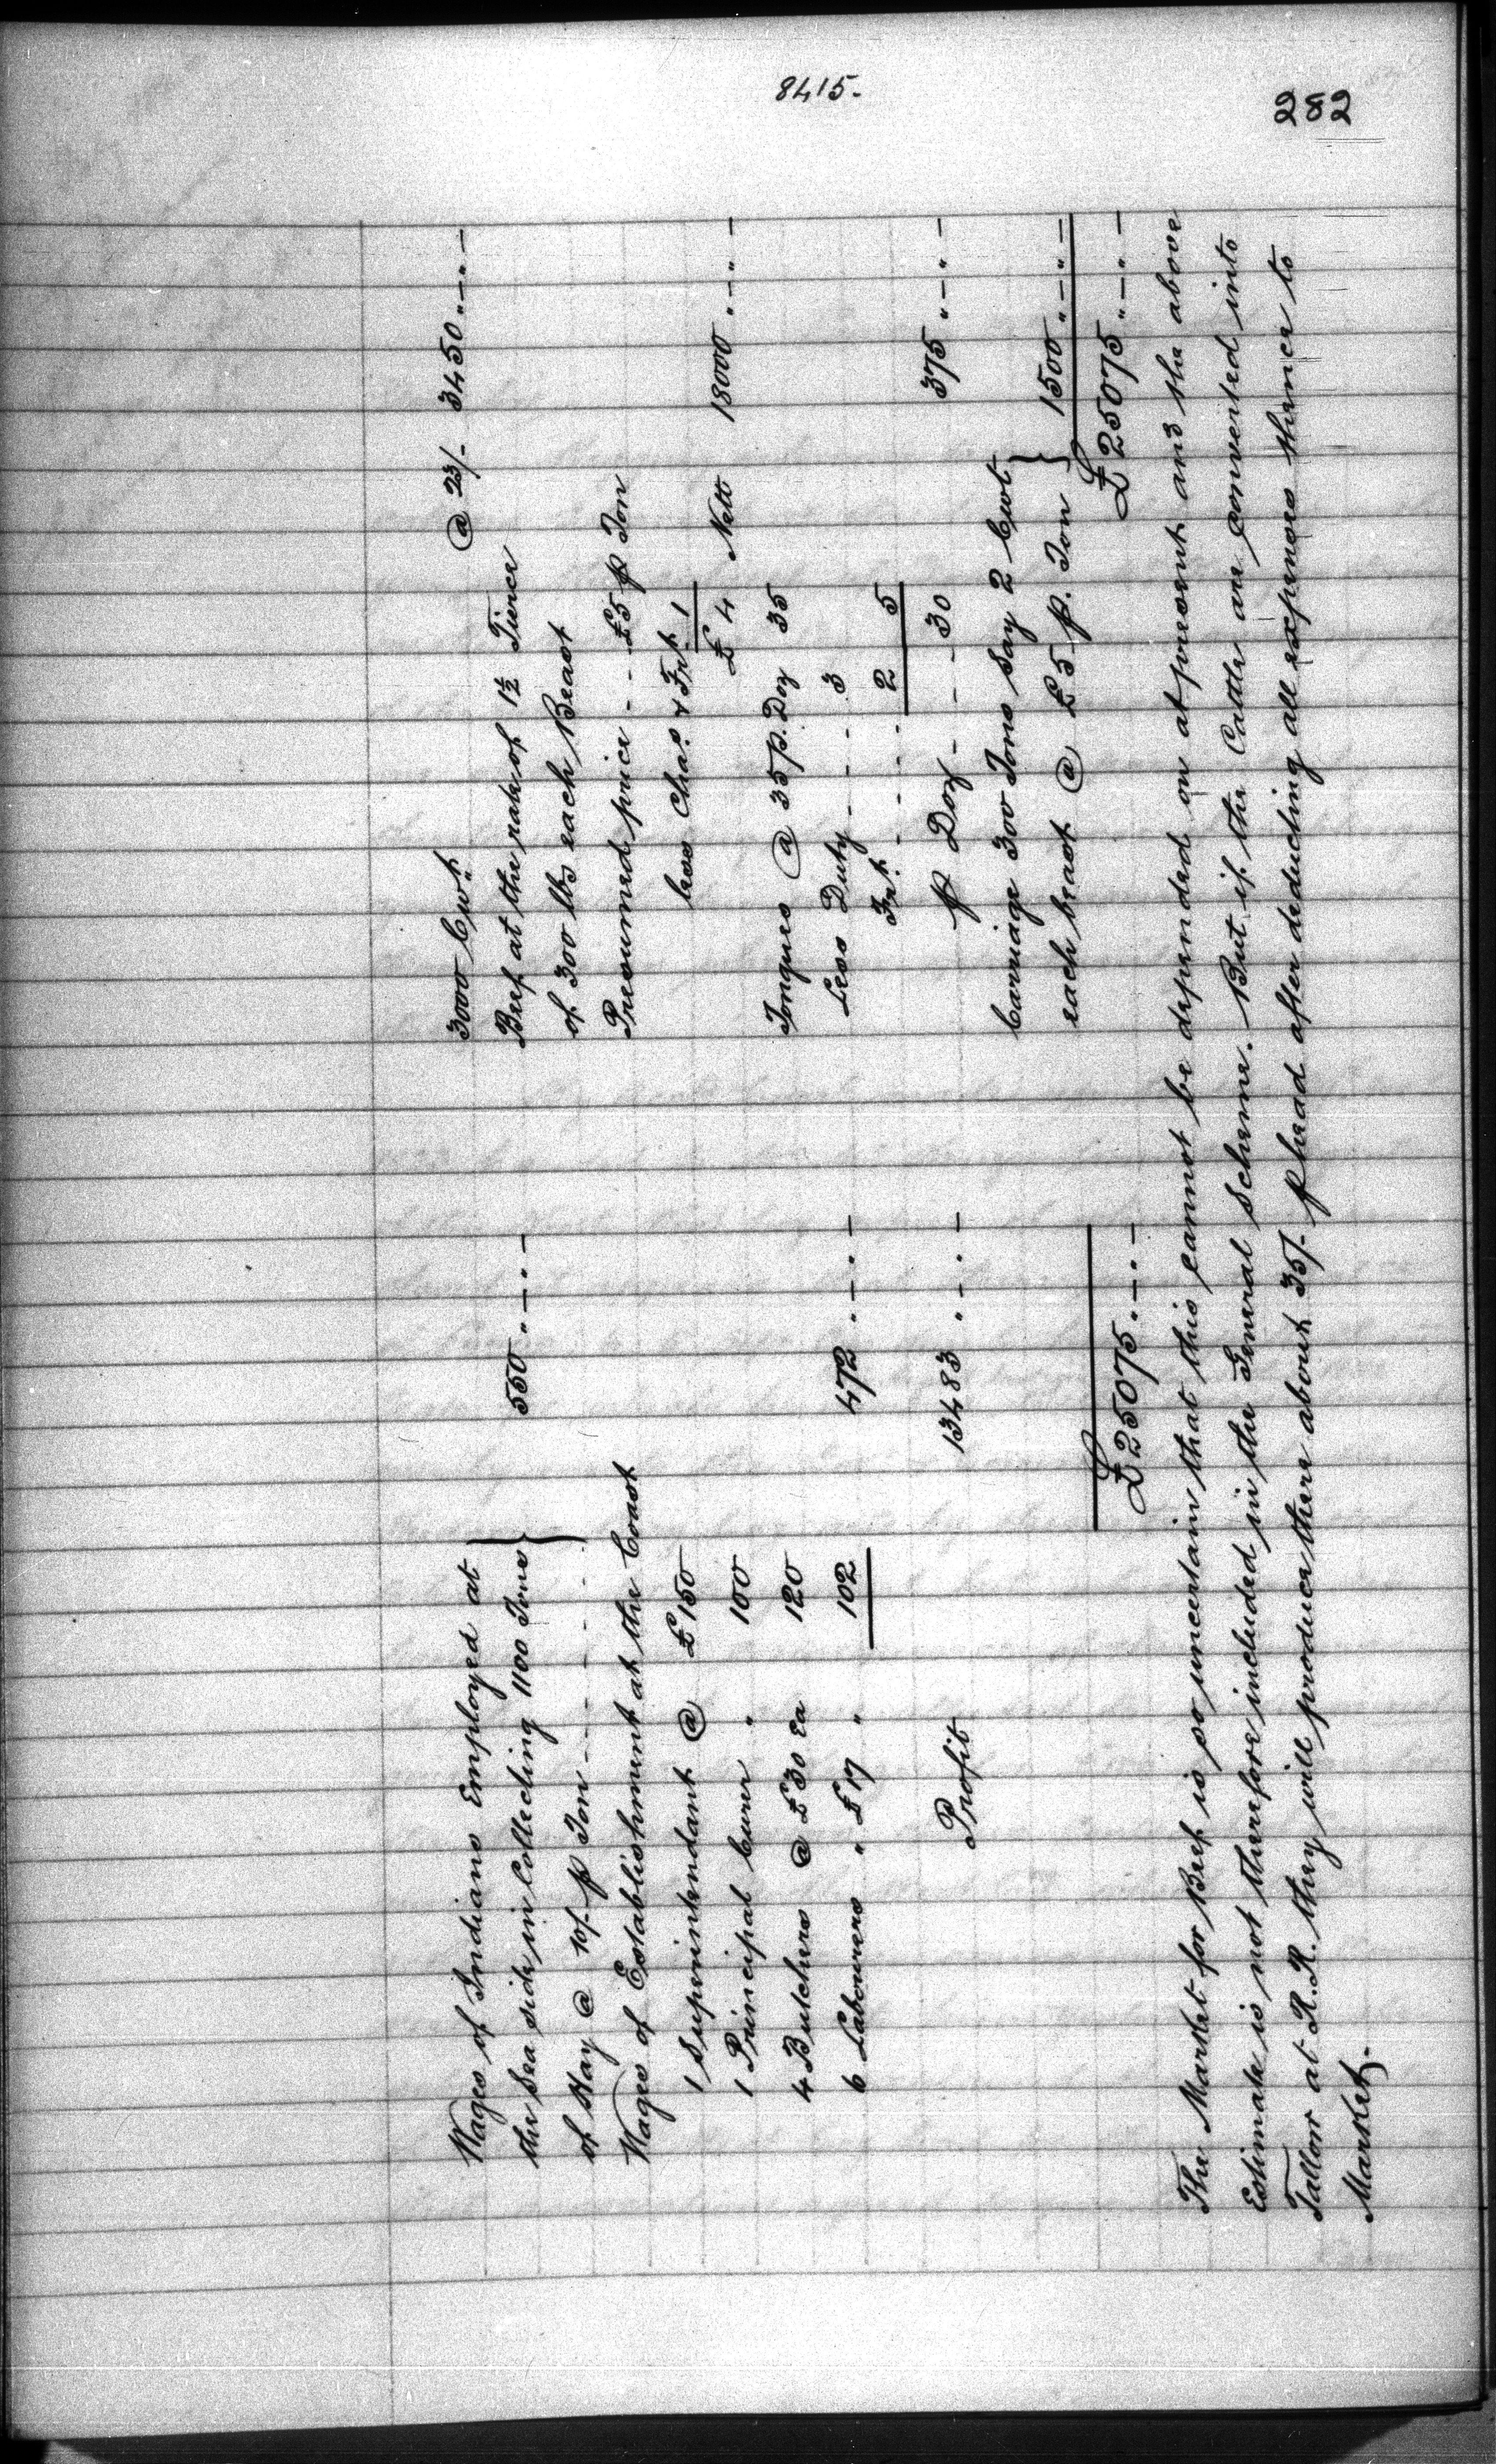 8415.
282
Wages of Indians Employed at
the Sea side in Collecting 1100 Tons
of Hay @ 10/- p Ton - - - - - - 550 " — " —
Wages of Establishment at the Coast
1 Superintendant @ £150
1 Principal Curer " 100
4 Butchers @ £30 Ea 120
6 Labourers " £17 " 102 472 " — " —
Profit 13483 " — " —
£25075 " — " —
3000 Cwt @ 23/- 3450 " — " —
Beef at the rate of 1½ Tierce
of 300 lbs each Beast
Presumed price - - £5 p Ton
less Chas. & Frt. 1
£ 4 Nett 18000 " — " —
Tongues @ 35 p. Doz 35
Less Duty - - - 3
Frt. - - - - 2 5
p Doz - - - 30 375 " — " —
Carriage 300 Tons Say 2 Cwt
each beast @ £5 p. Ton 1500 " — " —
£25075 " — " —
The Market for Beef is so uncertain that this cannot be depended on at present and the above
Estimate is not therefore included in the General Scheme. But if the Cattle are converted into
Tallow at R.R. they will produce there about 35/- p head after deducting all expenses thence to
Market.